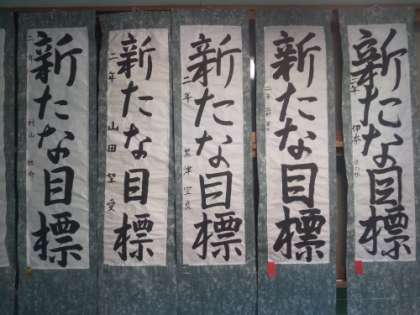 新たな目標
二年
新たな目標
二年 山田
新たな目標
二年
新たな目標
二年
新たな目標
二年